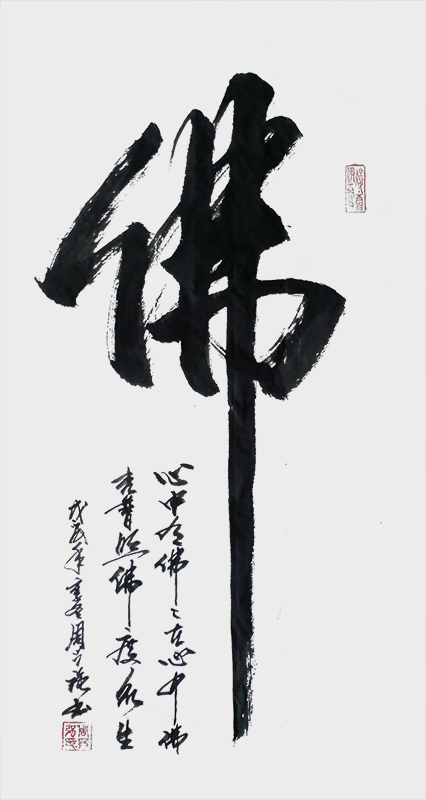 佛
心中有佛々在心中佛
光普照佛々度众生
戊戌年周书